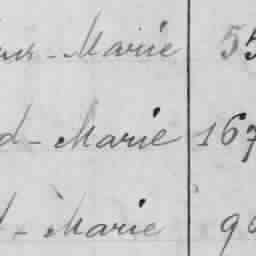 - Marie 55
d - Marie 167
d - Marie 9